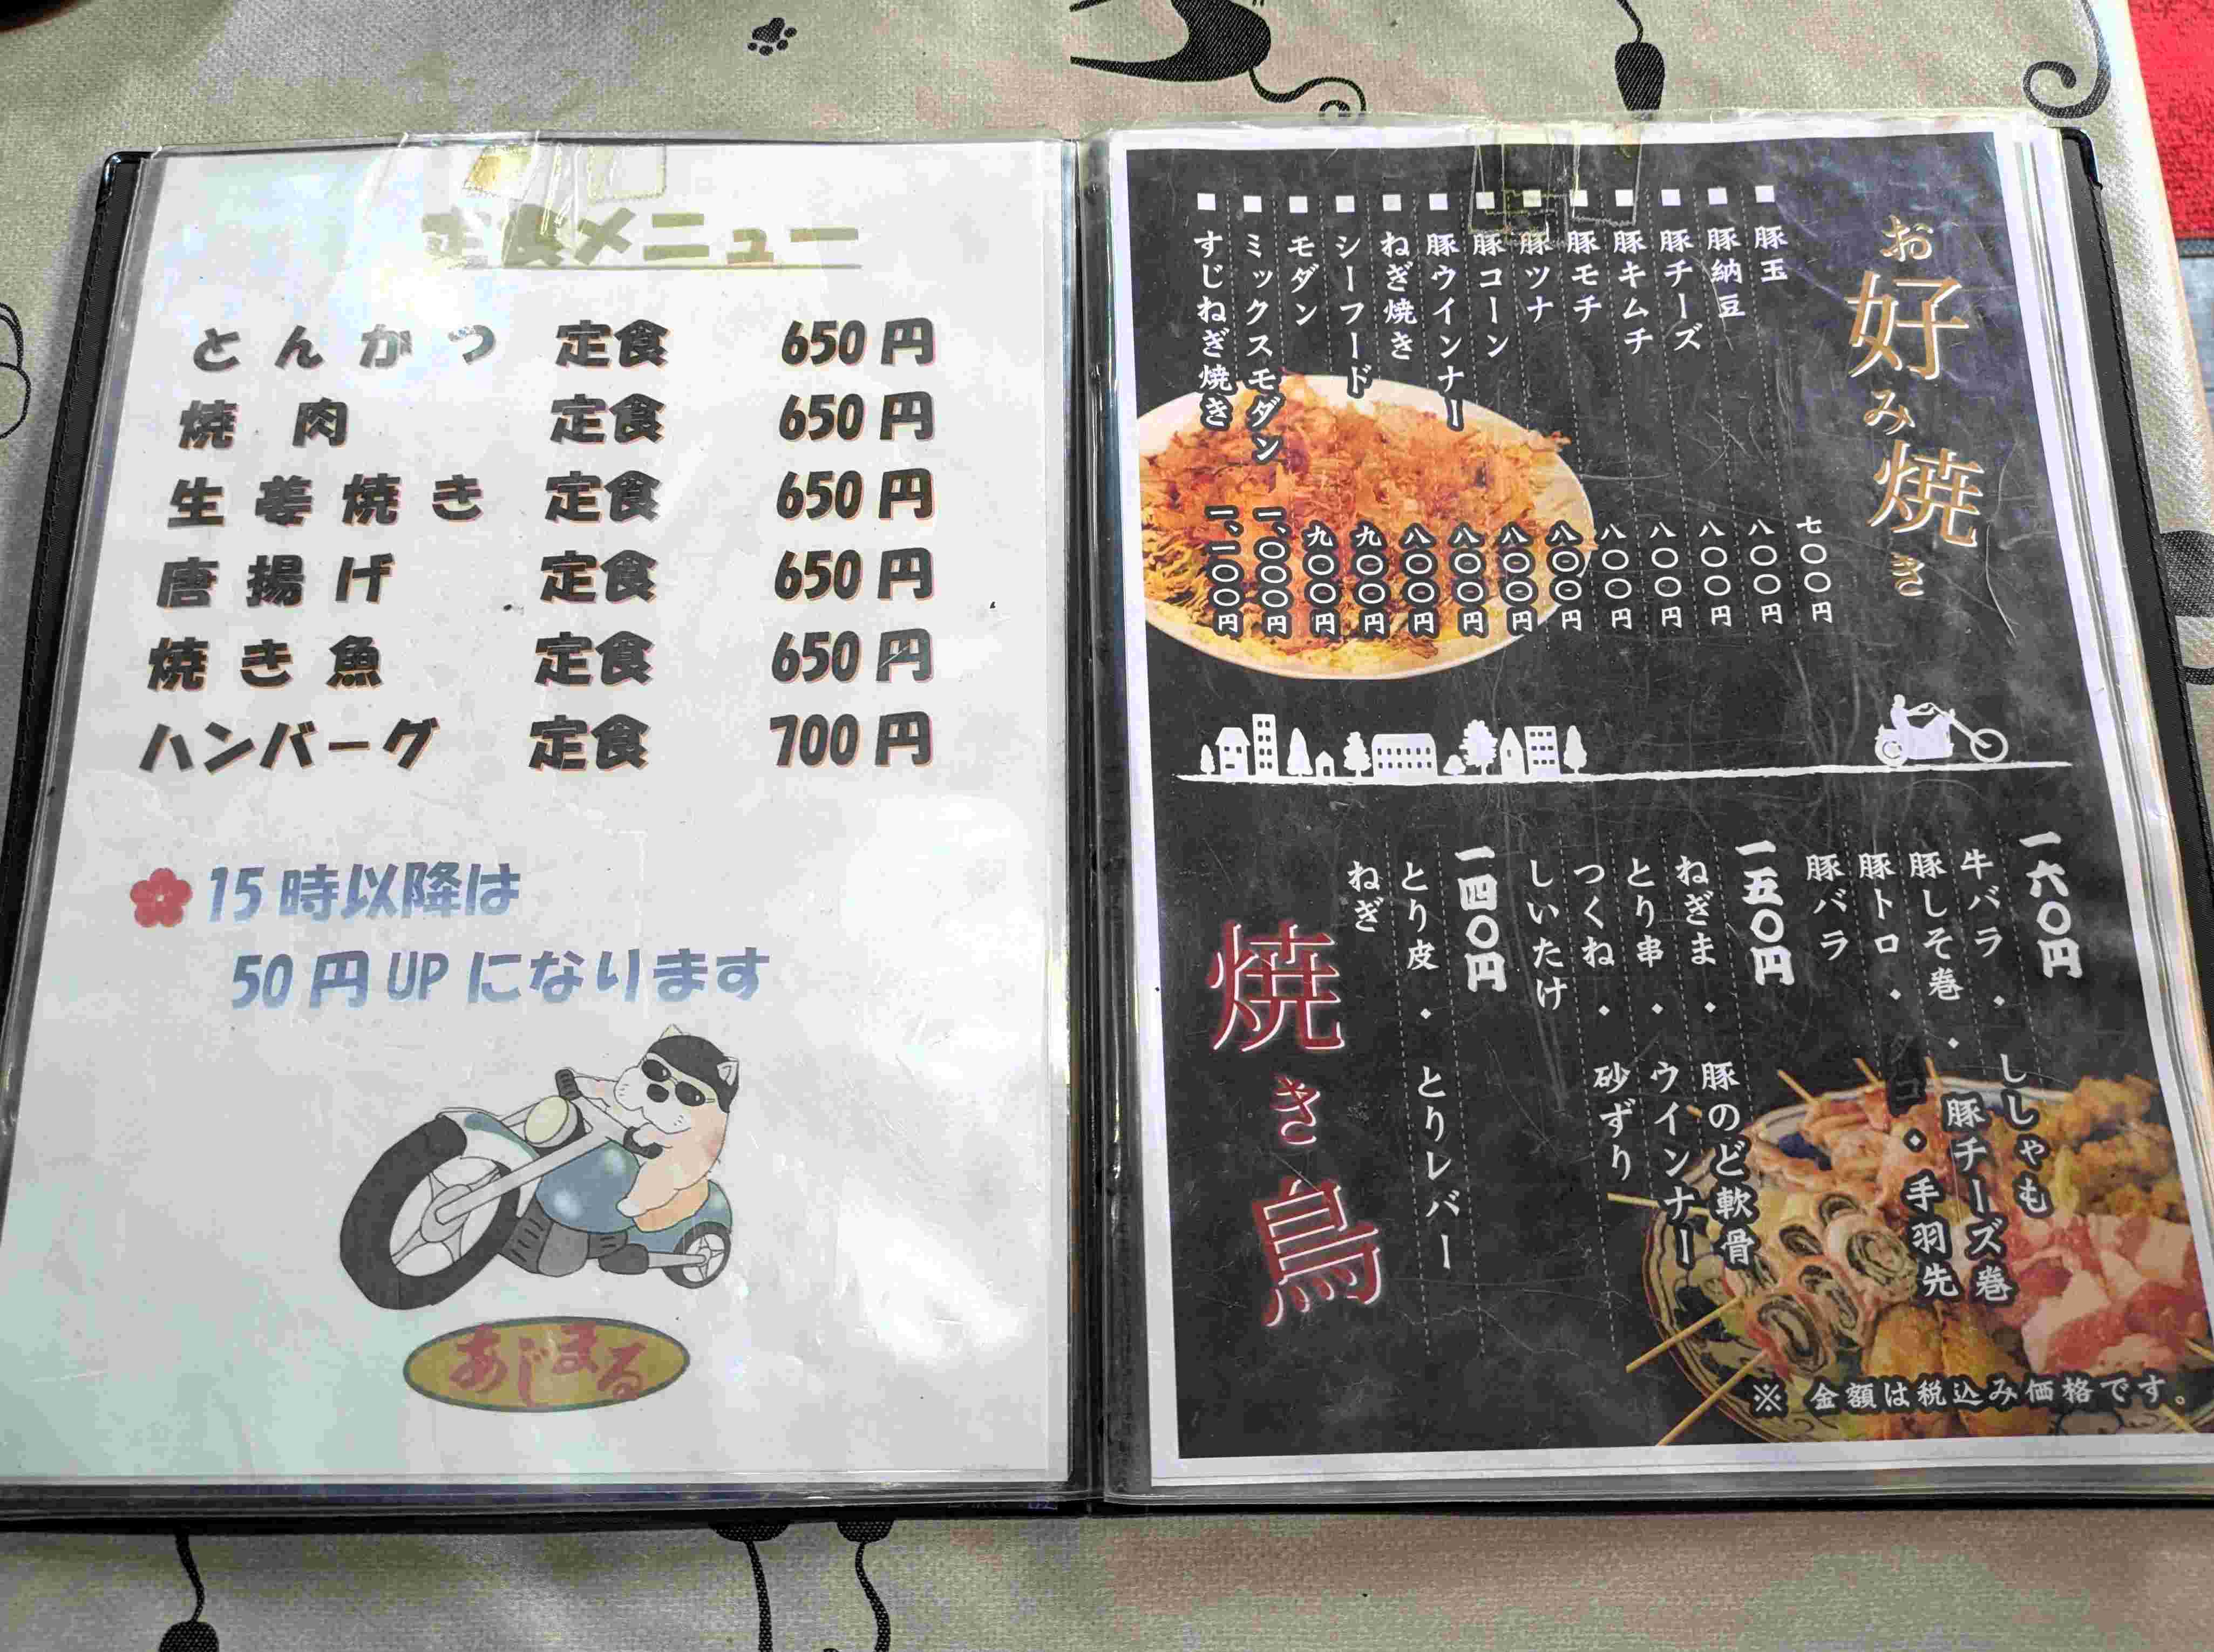 定食メニュー
とんかつ 定食 650円
焼肉 定食 650円
生姜焼き 定食 650円
唐揚げ 定食 650円
焼き魚 定食 650円
ハンバーグ 定食 700円
15時以降は
50円UPになります
あじまる
お好み焼き
■豚玉 七〇〇円
■豚納豆 八〇〇円
■豚チーズ 八〇〇円
■豚キムチ 八〇〇円
■豚モチ 八〇〇円
■豚ツナ 八〇〇円
■豚コーン 八〇〇円
■豚ウインナー 八〇〇円
■ねぎ焼き 八〇〇円
■シーフード 九〇〇円
■モダン 九〇〇円
■ミックスモダン 一、〇〇〇円
■すじねぎ焼き 一、一〇〇円
一六〇円
牛バラ・ししゃも
豚しそ巻・豚チーズ巻
豚トロ・・手羽先
豚バラ
一五〇円
ねぎま・豚のど軟骨
とり串・ウインナー
つくね・砂ずり
しいたけ
一四〇円
とり皮・とりレバー
ねぎ
焼き鳥
※ 金額は税込み価格です。